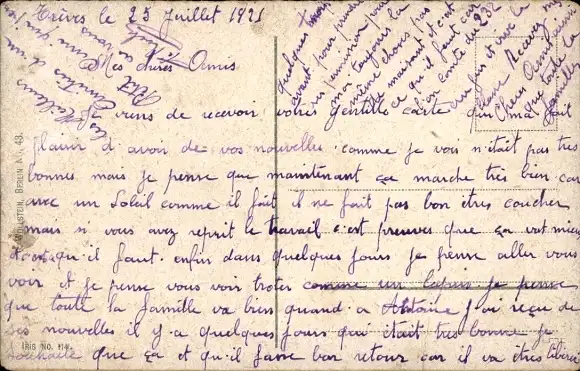 Trèves le 25 Juillet 1921
Mes chères Amis
Je viens de recevoir votres gentille carte qui ma fait
plaisir d'avoir de vos nouvelles comme je vois n'était pas très
bonnes mais je pense que maintenant ça marche très bien car
avec un Soleil comme il fait il ne fait pas bon êtres coucher
mais si vous avez reprit le travail c'est preuves que ça vat mieux
et c'est qu'il faut enfin dans quelques jours je pense aller vous
voir et je pense vous voir troter comme un lapin je pense
que toute la famille va bien quand a Antoine j'ai reçu de
ses nouvelles il y a quelques jours qui était très bonne je
souhaite que ça et qu'il fasse bon retour car il va êtres libérer
quelques
avant pour
en permission pour
moi toujours la
même chose pas
ce qu'il faut car
l'on conte du 23
au jus et vive la
Recevez
Chers Amis
que toute la
famille
les Meilleurs
Amitiés d'un
Petit
IRIS NO. 114